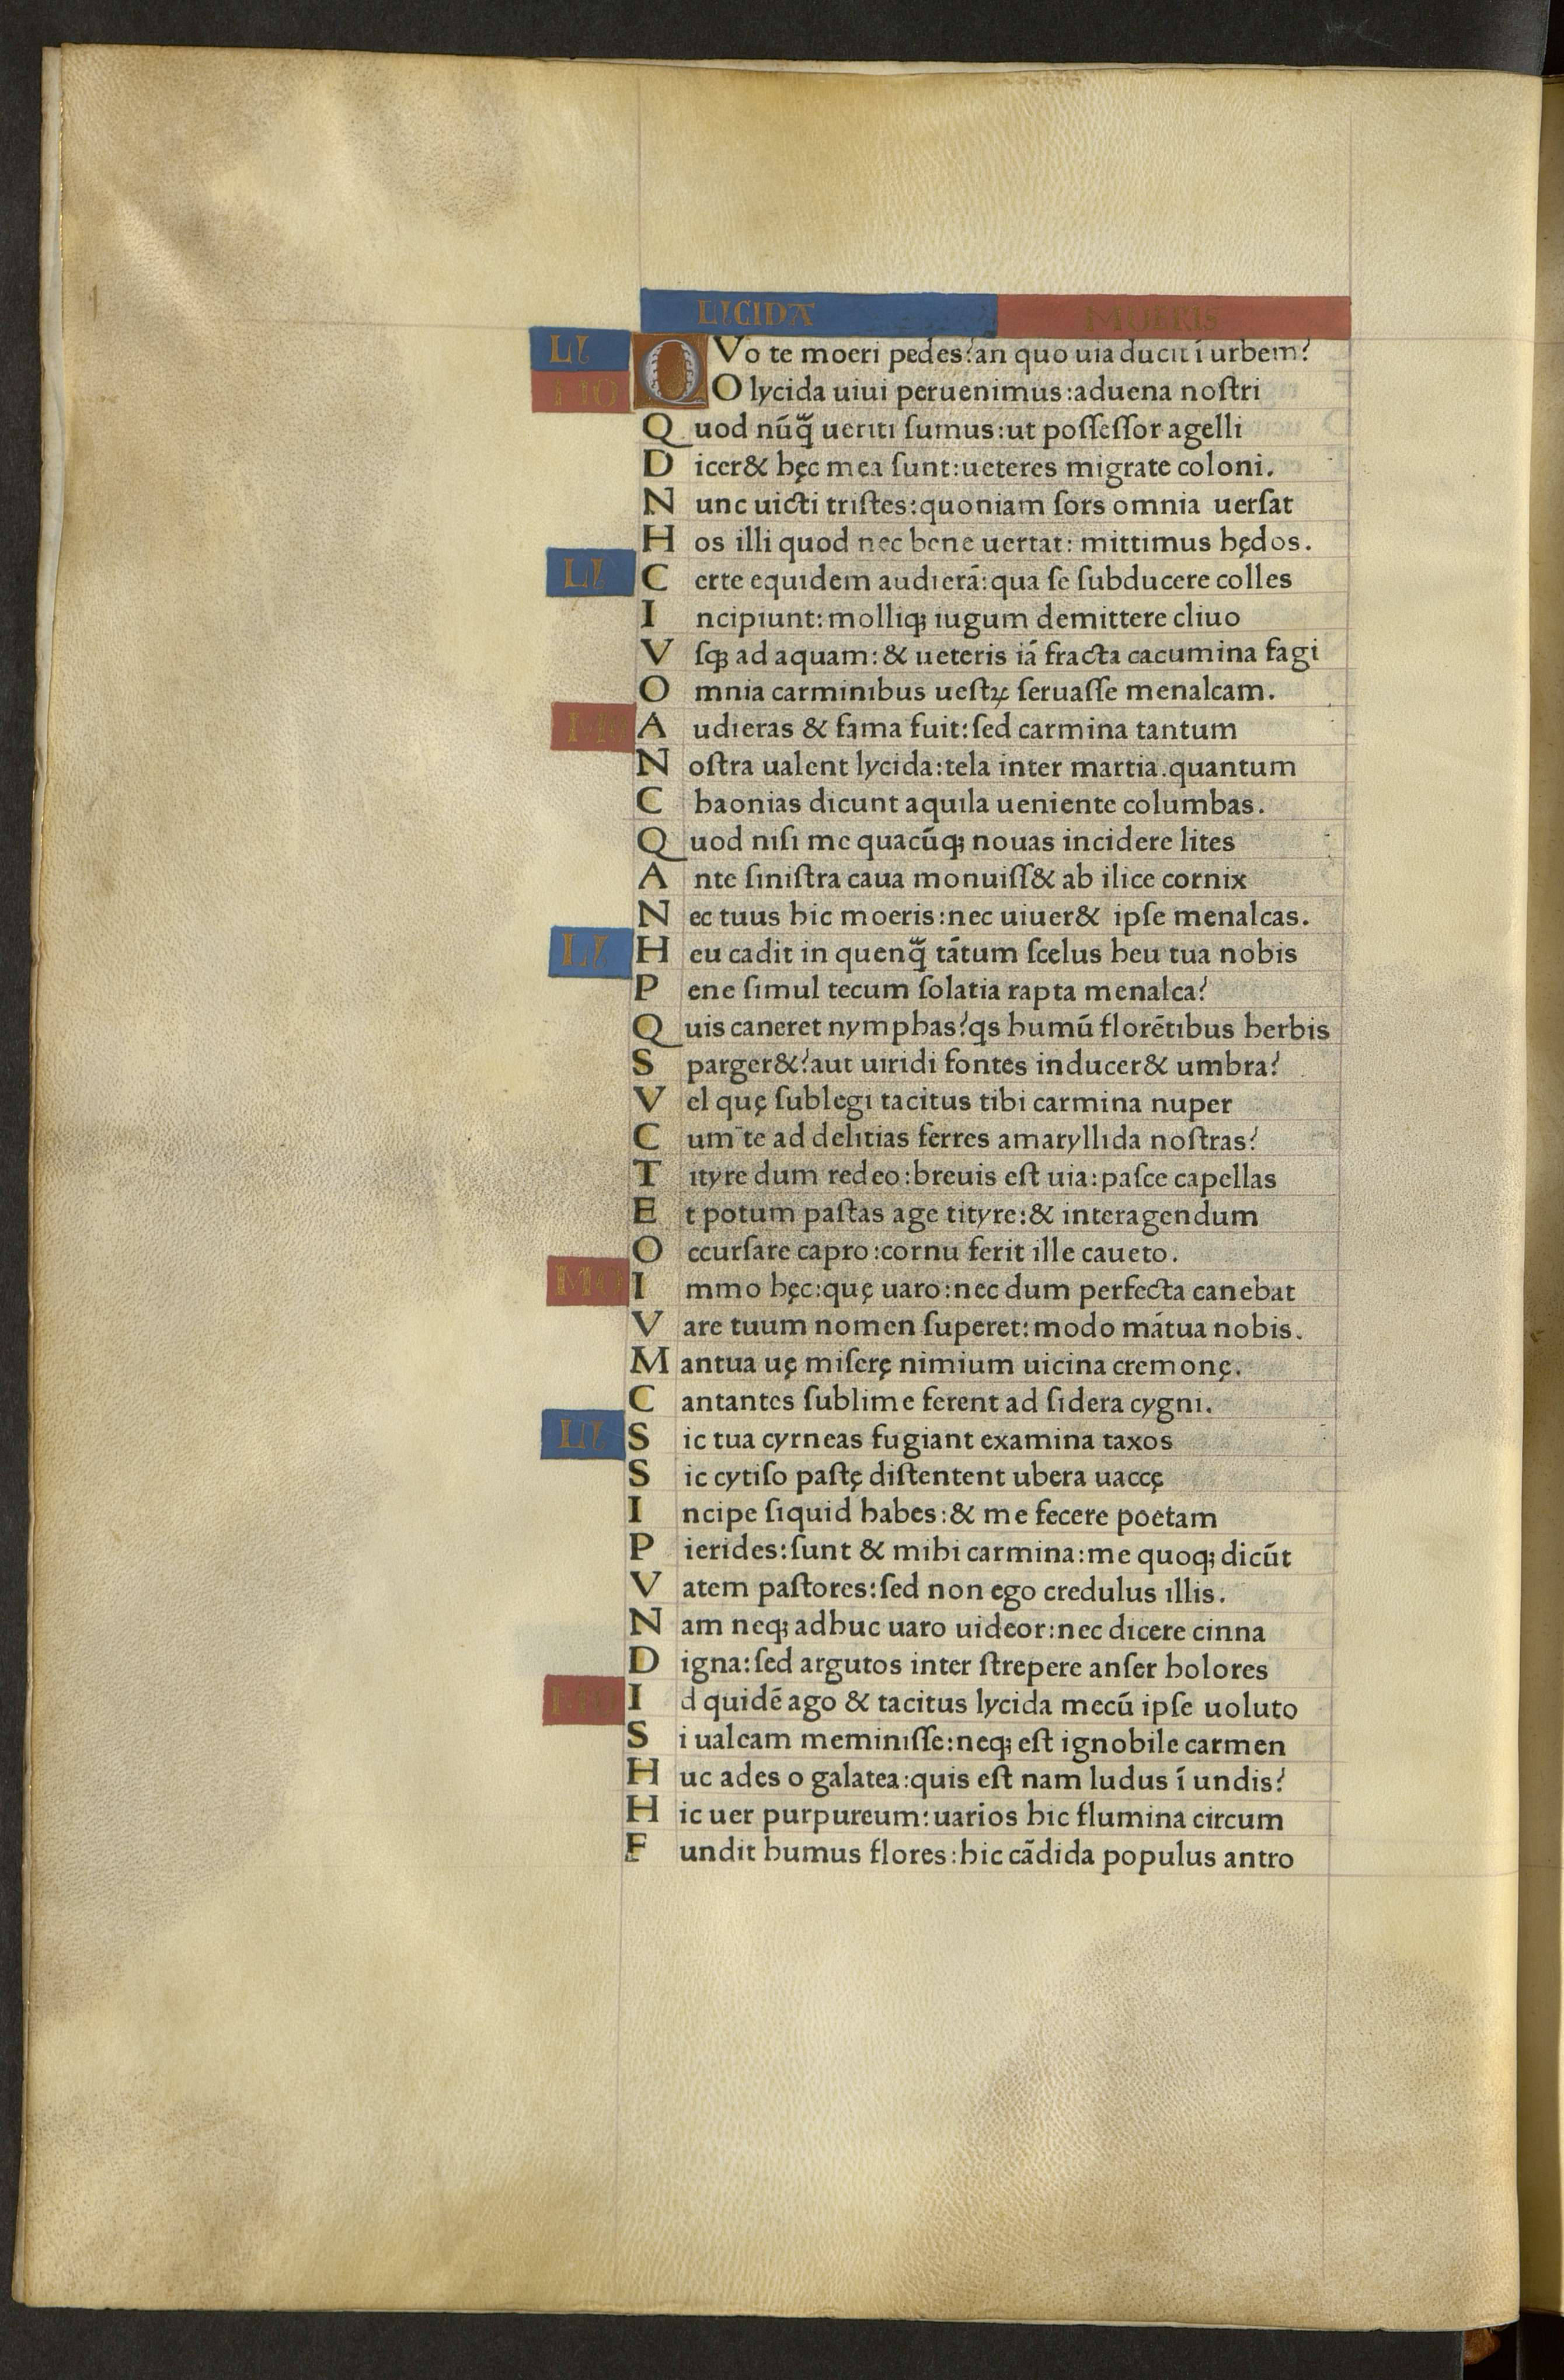 LICIDA MOERIS
LI QVo te moeri pedes? an quo uia ducit ī urbem?
MO O lycida uiui peruenimus: aduena nostri
Quod nūq̄ ueriti sumus: ut possessor agelli
Dicer& hęc mea sunt: ueteres migrate coloni.
Nunc uicti tristes: quoniam sors omnia uersat
Hos illi quod nec bene uertat: mittimus hędos.
LI Certe equidem audierā: qua se subducere colles
Incipiunt: molliq; iugum demittere cliuo
Vsq; ad aquam: & ueteris iā fracta cacumina fagi
Omnia carminibus uestꝝ seruasse menalcam.
MO Audieras & fama fuit: sed carmina tantum
Nostra ualent lycida: tela inter martia. quantum
Chaonias dicunt aquila ueniente columbas.
Quod nisi me quacūq; nouas incidere lites
Ante sinistra caua monuiss& ab ilice cornix
Nec tuus hic moeris: nec uiuer& ipse menalcas.
LI Heu cadit in quenq̄ tātum scelus heu tua nobis
Pene simul tecum solatia rapta menalca?
Quis caneret nymphas? qs humū florētibus herbis
Sparger&? aut uiridi fontes inducer& umbra?
Vel quę sublegi tacitus tibi carmina nuper
Cum te ad delitias ferres amaryllida nostras?
Tityre dum redeo: breuis est uia: pasce capellas
Et potum pastas age tityre: & interagendum
Occursare capro: cornu ferit ille caueto.
MO Immo hęc: quę uaro: nec dum perfecta canebat
Vare tuum nomen superet: modo mātua nobis.
Mantua uę miserę nimium uicina cremonę.
Cantantes sublime ferent ad sidera cygni.
LI Sic tua cyrneas fugiant examina taxos
Sic cytiso pastę distentent ubera uaccę
Incipe siquid habes: & me fecere poetam
Pierides: sunt & mihi carmina: me quoq; dicūt
Vatem pastores: sed non ego credulus illis.
Nam neq; adhuc uaro uideor: nec dicere cinna
Digna: sed argutos inter strepere anser holores
MO Id quidē ago & tacitus lycida mecū ipse uoluto
Si ualeam meminisse: neq; est ignobile carmen
Huc ades o galatea: quis est nam ludus ī undis?
Hic uer purpureum: uarios hic flumina circum
Fundit humus flores: hic cādida populus antro